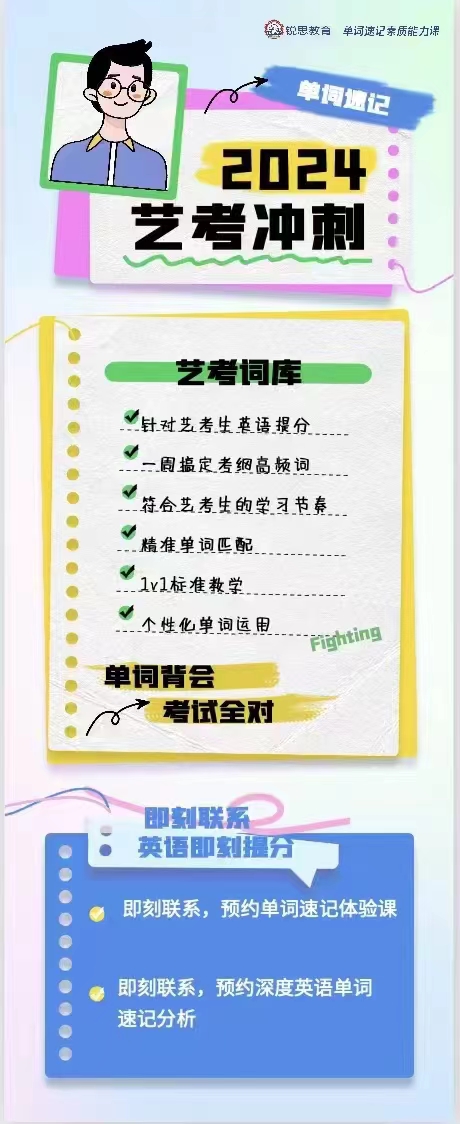 锐思教育 单词速记亲质能力课
单词速记
2024
艺考冲刺
艺考词库
针对艺考生英语提分
一周搞定考纲高频词
符合艺考生的学习节奏
精准单词匹配
1v1标准教学
个性化单词运用
Fighting
单词背会
考试全对
即刻联系
英语即刻提分
即刻联系，预约单词速记体验课
即刻联系，预约深度英语单词
速记分析